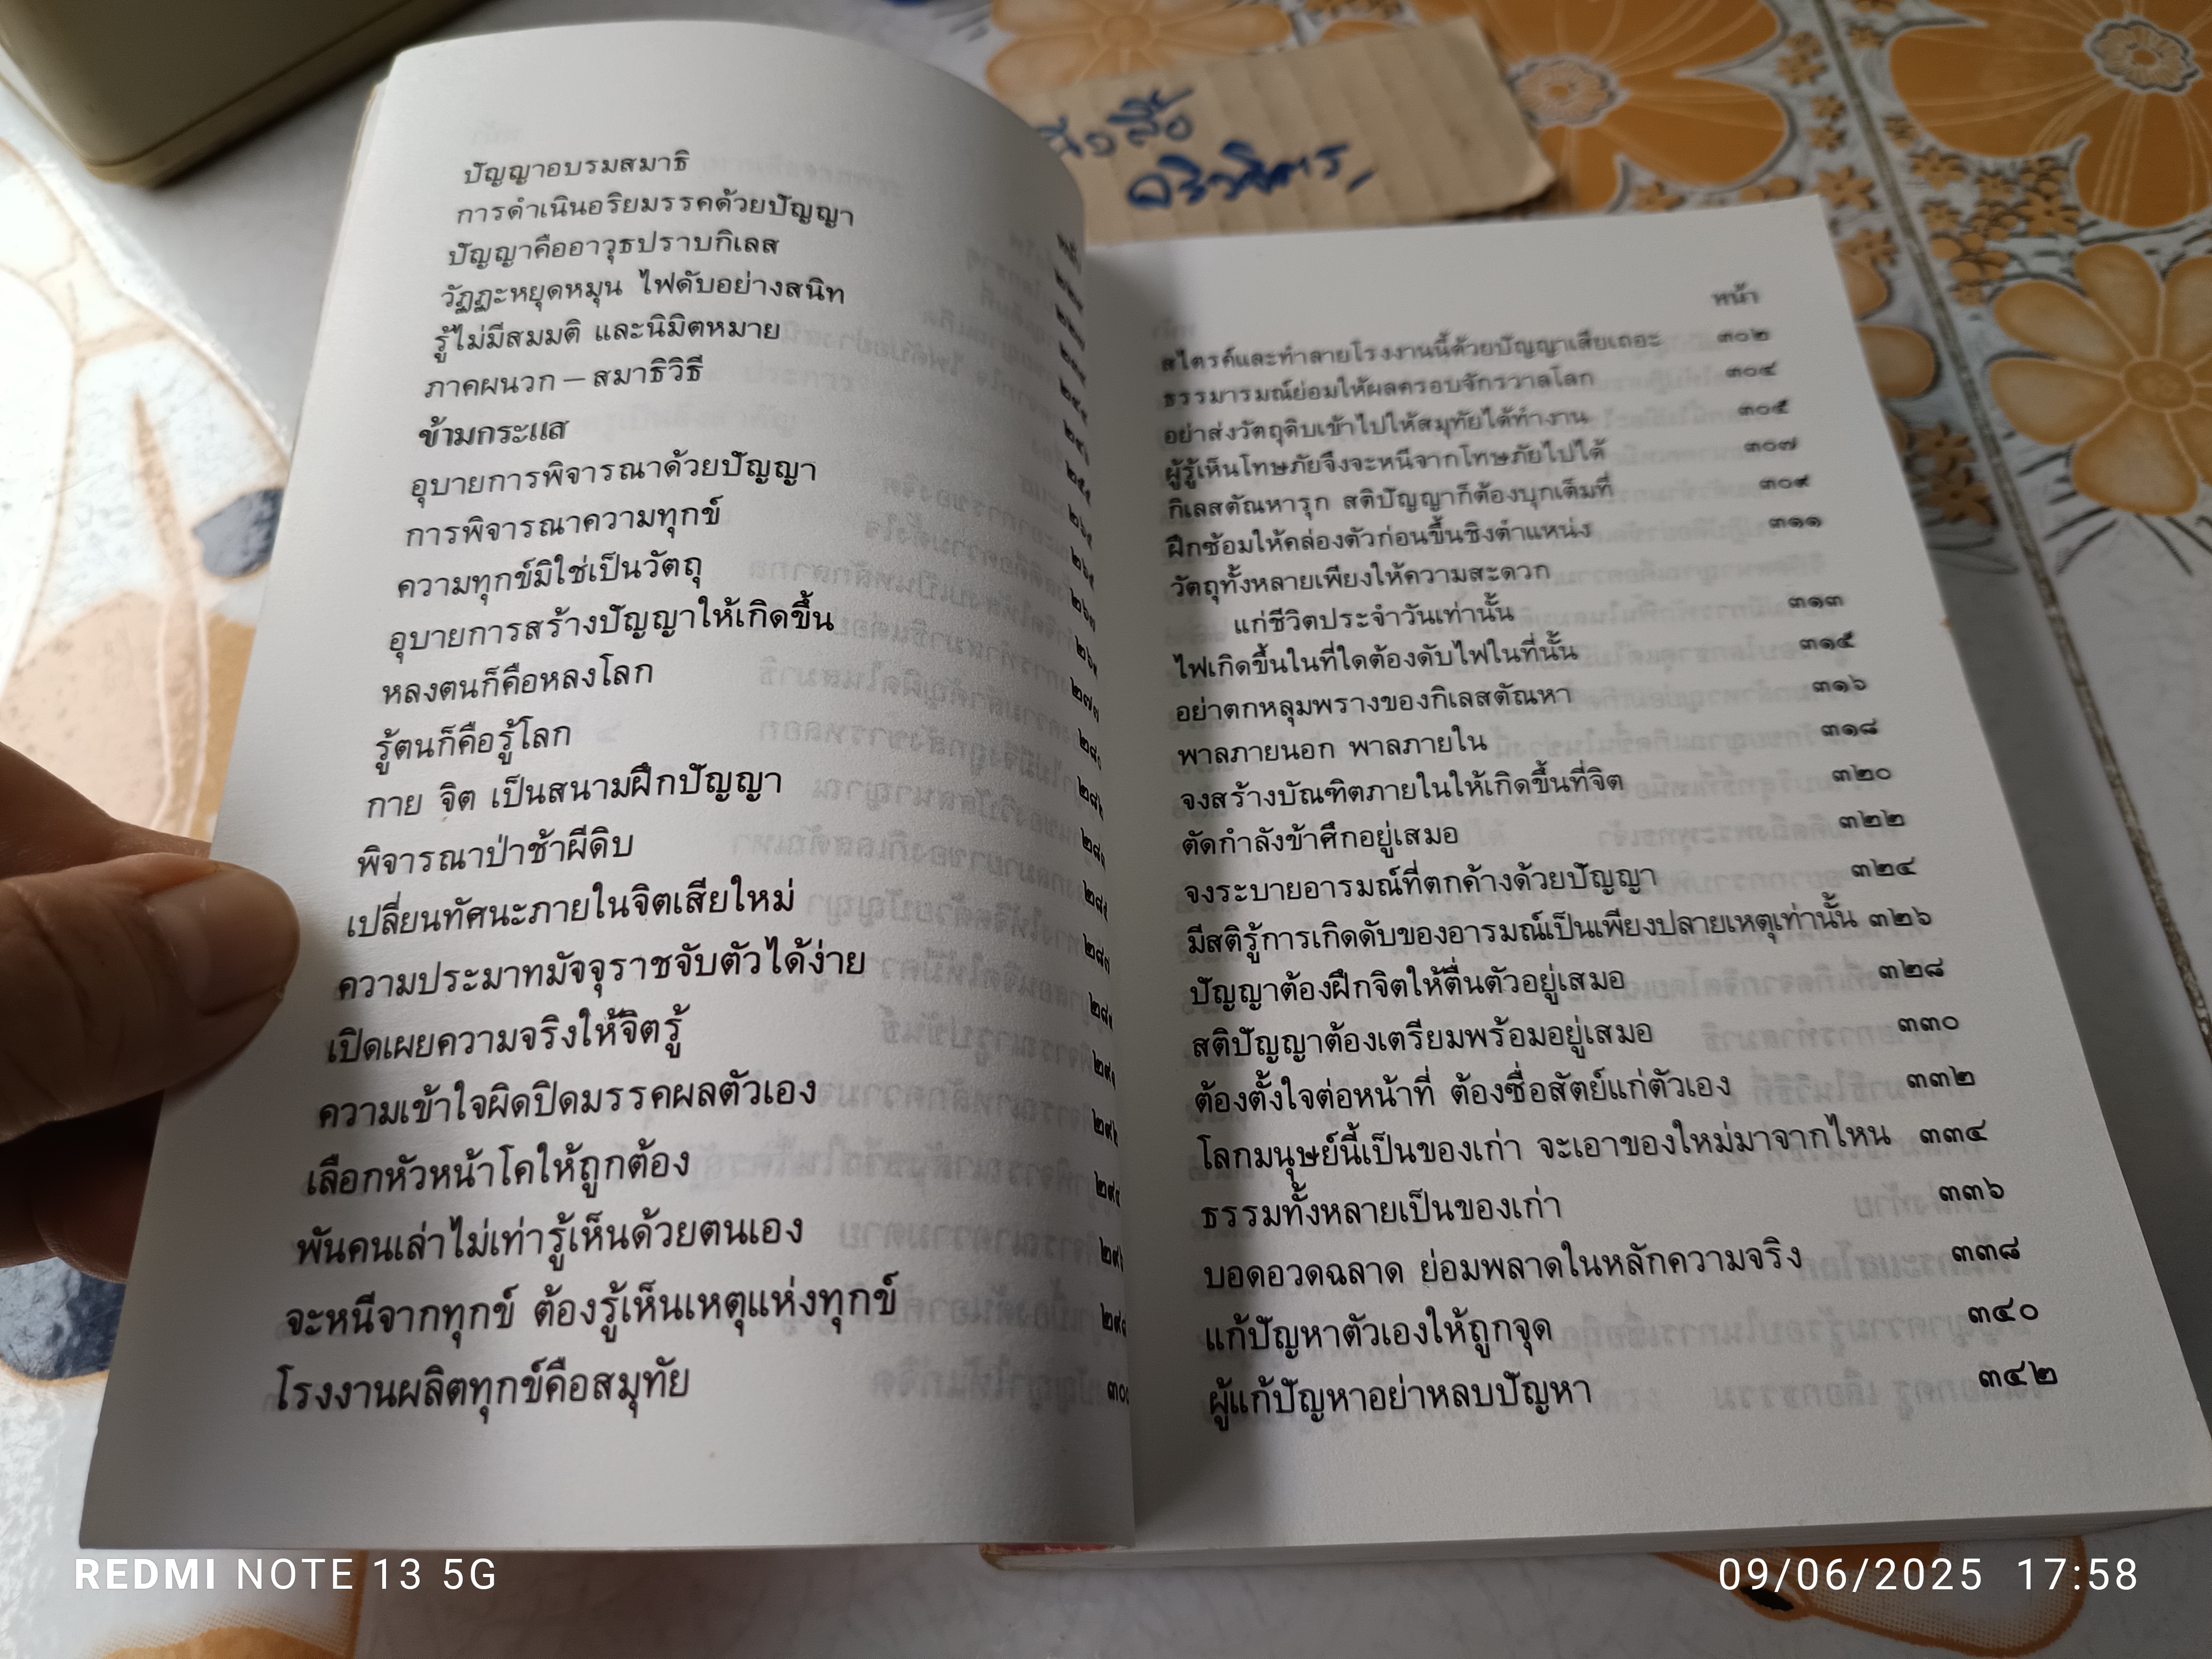 ปัญญาอบรมสมาธิ
การดำเนินอริยมรรคด้วยปัญญา
ปัญญาคืออาวุธปราบกิเลส
วัฏฏะหยุดหมุน ไฟดับอย่างสนิท
รู้ไม่มีสมมติ และนิมิตหมาย
ภาคผนวก – สมาธิวิธี
ข้ามกระแส
อุบายการพิจารณาด้วยปัญญา
การพิจารณาความทุกข์
ความทุกข์มิใช่เป็นวัตถุ
อุบายการสร้างปัญญาให้เกิดขึ้น
หลงตนก็คือหลงโลก
รู้ตนก็คือรู้โลก
กาย จิต เป็นสนามฝึกปัญญา
พิจารณาป่าช้าผีดิบ
เปลี่ยนทัศนะภายในจิตเสียใหม่
ความประมาทมัจจุราชจับตัวได้ง่าย
เปิดเผยความจริงให้จิตรู้
ความเข้าใจผิดปิดมรรคผลตัวเอง
เลือกหัวหน้าโคให้ถูกต้อง
พันคนเล่าไม่เท่ารู้เห็นด้วยตนเอง
จะหนีจากทุกข์ ต้องรู้เห็นเหตุแห่งทุกข์
โรงงานผลิตทุกข์คือสมุทัย
หน้า
สไตรค์และทำลายโรงงานนี้ด้วยปัญญาเสียเถอะ ๓๐๒
ธรรมารมณ์ย่อมให้ผลครอบจักรวาลโลก ๓๐๔
อย่าส่งวัตถุดิบเข้าไปให้สมุทัยได้ทำงาน ๓๐๕
ผู้รู้เห็นโทษภัยจึงจะหนีจากโทษภัยไปได้ ๓๐๗
กิเลสตัณหารุก สติปัญญาก็ต้องบุกเต็มที่ ๓๐๙
ฝึกซ้อมให้คล่องตัวก่อนขึ้นชิงตำแหน่ง ๓๑๑
วัตถุทั้งหลายเพียงให้ความสะดวก
แก่ชีวิตประจำวันเท่านั้น ๓๑๓
ไฟเกิดขึ้นในที่ใดต้องดับไฟในที่นั้น ๓๑๕
อย่าตกหลุมพรางของกิเลสตัณหา ๓๑๖
พาลภายนอก พาลภายใน ๓๑๘
จงสร้างบัณฑิตภายในให้เกิดขึ้นที่จิต ๓๒๐
ตัดกำลังข้าศึกอยู่เสมอ ๓๒๒
จงระบายอารมณ์ที่ตกค้างด้วยปัญญา ๓๒๔
มีสติรู้การเกิดดับของอารมณ์เป็นเพียงปลายเหตุเท่านั้น ๓๒๖
ปัญญาต้องฝึกจิตให้ตื่นตัวอยู่เสมอ ๓๒๘
สติปัญญาต้องเตรียมพร้อมอยู่เสมอ ๓๓๐
ต้องตั้งใจต่อหน้าที่ ต้องซื่อสัตย์แก่ตัวเอง ๓๓๒
โลกมนุษย์นี้เป็นของเก่า จะเอาของใหม่มาจากไหน ๓๓๔
ธรรมทั้งหลายเป็นของเก่า ๓๓๖
บอดอวดฉลาด ย่อมพลาดในหลักความจริง ๓๓๘
แก้ปัญหาตัวเองให้ถูกจุด ๓๔๐
ผู้แก้ปัญหาอย่าหลบปัญหา ๓๔๒
REDMI NOTE 13 5G
09/06/2025 17:58